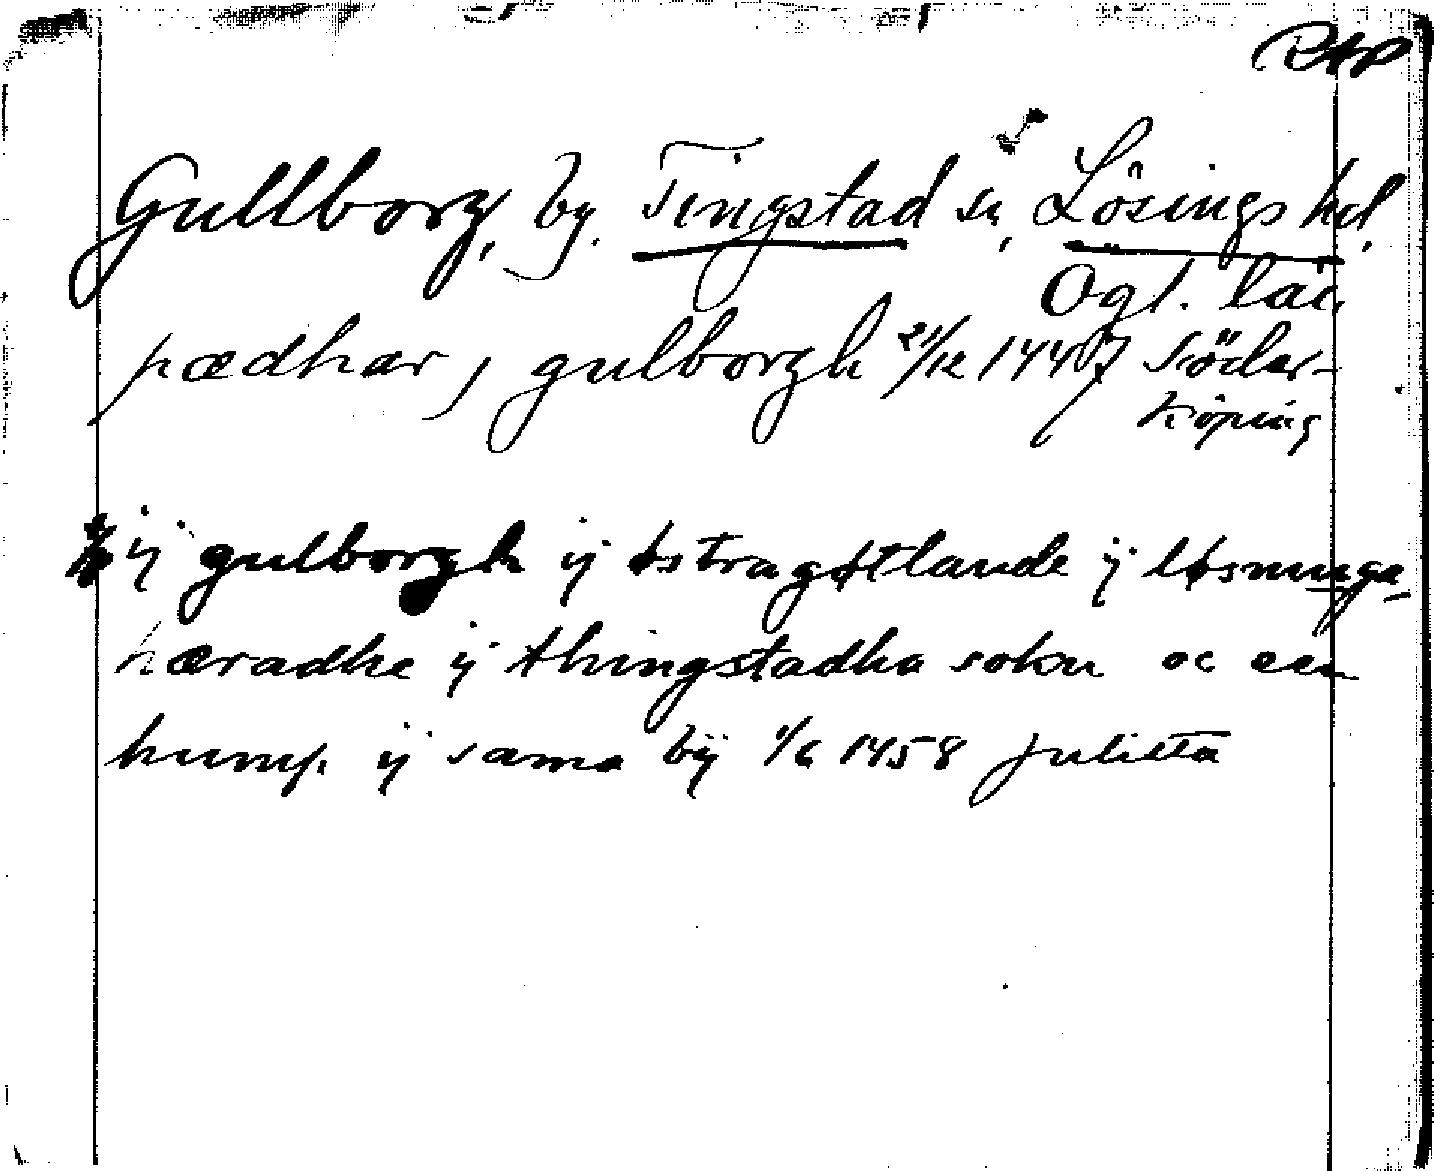 RAP
Gullborg, by. Tingstad sn, Lösings hd,
Ögl. län
pædhar j gulborgh 21/12 1447 Söder-
köping
ij gulborgh ij østragøtlande ij løsnunga
hæradhe ij thingstadha sokn oc een
hump. ij sama bÿ 1/6 1458 Julitta